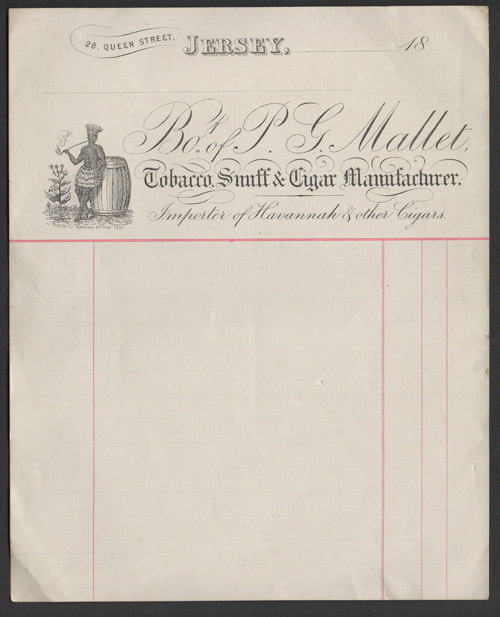 28. QUEEN STREET.
JERSEY, 18
Bo.t of P. G. Mallet,
Tobacco, Snuff & Cigar Manufacturer.
Importer of Havannah & other Cigars.